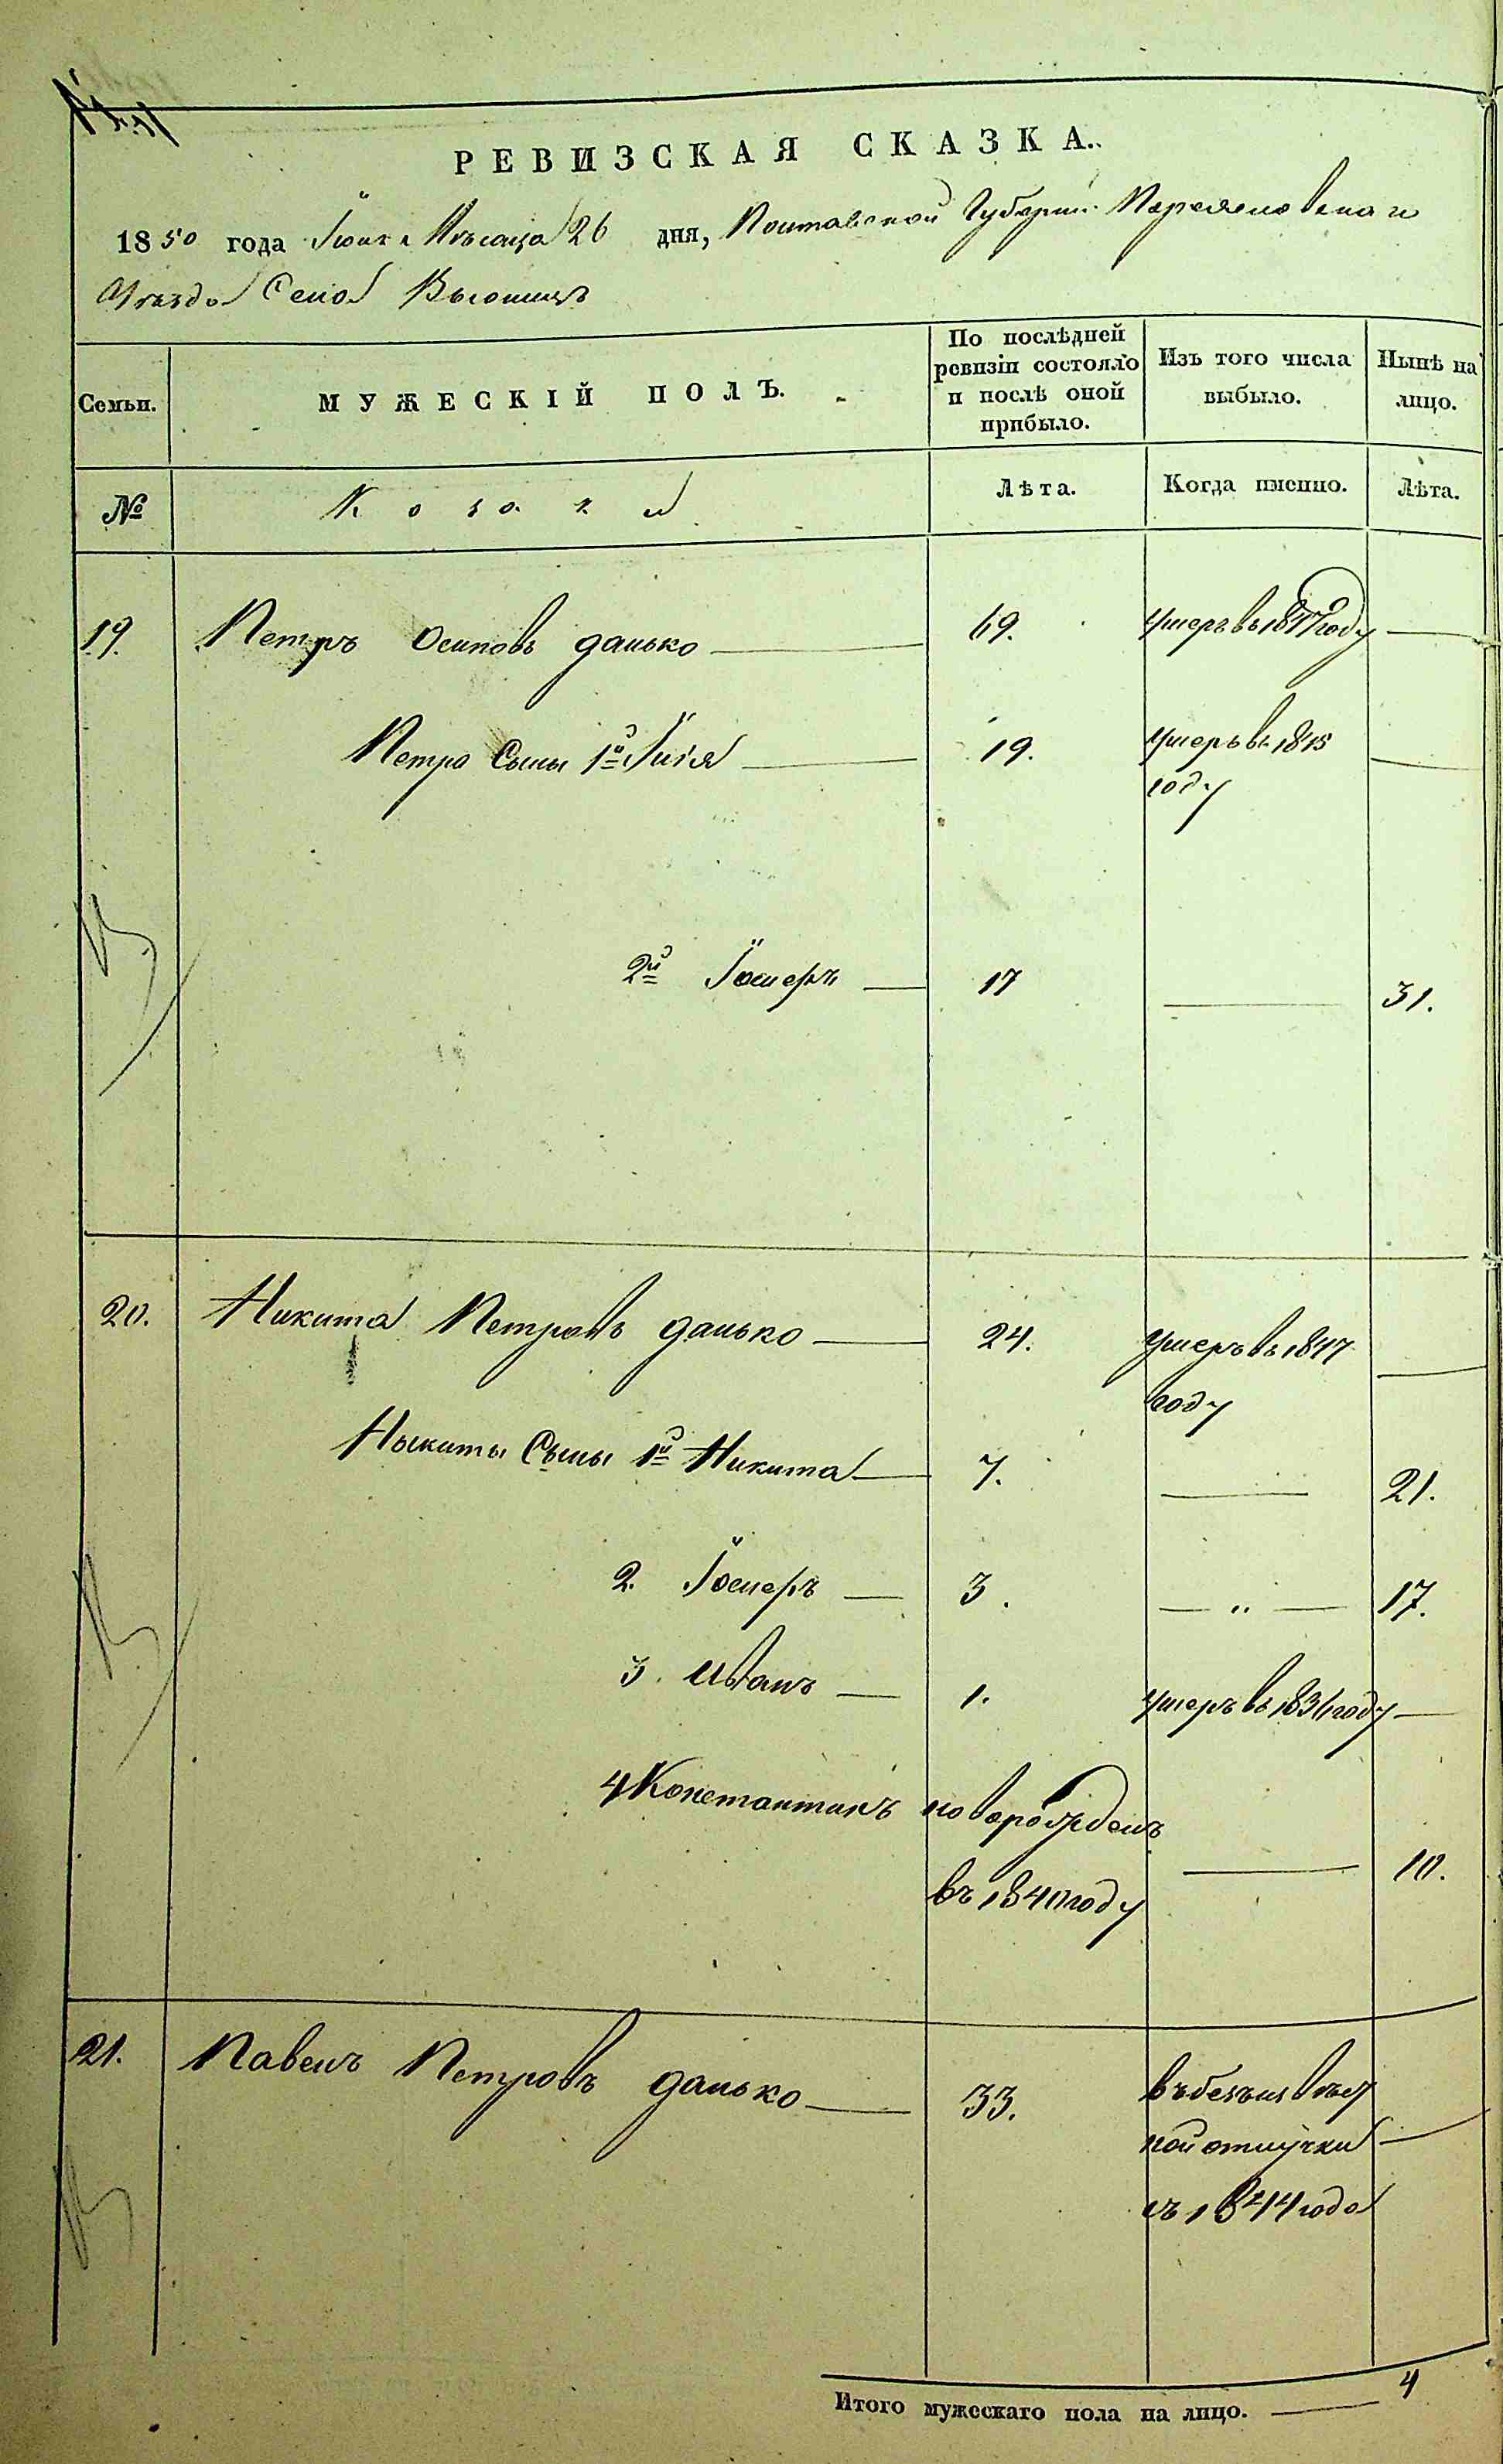 РЕВИЗСКАЯ СКАЗКА.
1850 года Іюня Мѣсяца 26 дня, Полтавской Губерніи Переяславскаго
Уѣзда Села
Семьи.
МУЖЕСКІЙ ПОЛЪ.
По послѣдней
ревизіи состояло
и послѣ оной
прибыло.
Изъ того числа
выбыло.
Нынѣ на
лицо.
№
Козаки
Лѣта.
Когда имснно.
Лѣта.
19. Петръ Осиповъ данько 69. умеръ въ году
Петра Сыны 1й Илія 19. умеръ въ 1845
году
2й Іосиеръ 17 31.
20. Никита Петровъ данько 24. умеръ въ 1847
году
Ныкиты Сыны 1й Никита 7. 21.
2. Іосиеръ 3. — „ — 17.
3. Иванъ 1. умеръ въ 1836 году
4 Константинъ новорожденъ
въ 1840 году 10.
21. Павелъ Петровъ данько 33. въ безъизвѣст
ной отлучки
съ 1844 года
Итого мужескаго пола на лицо. 4